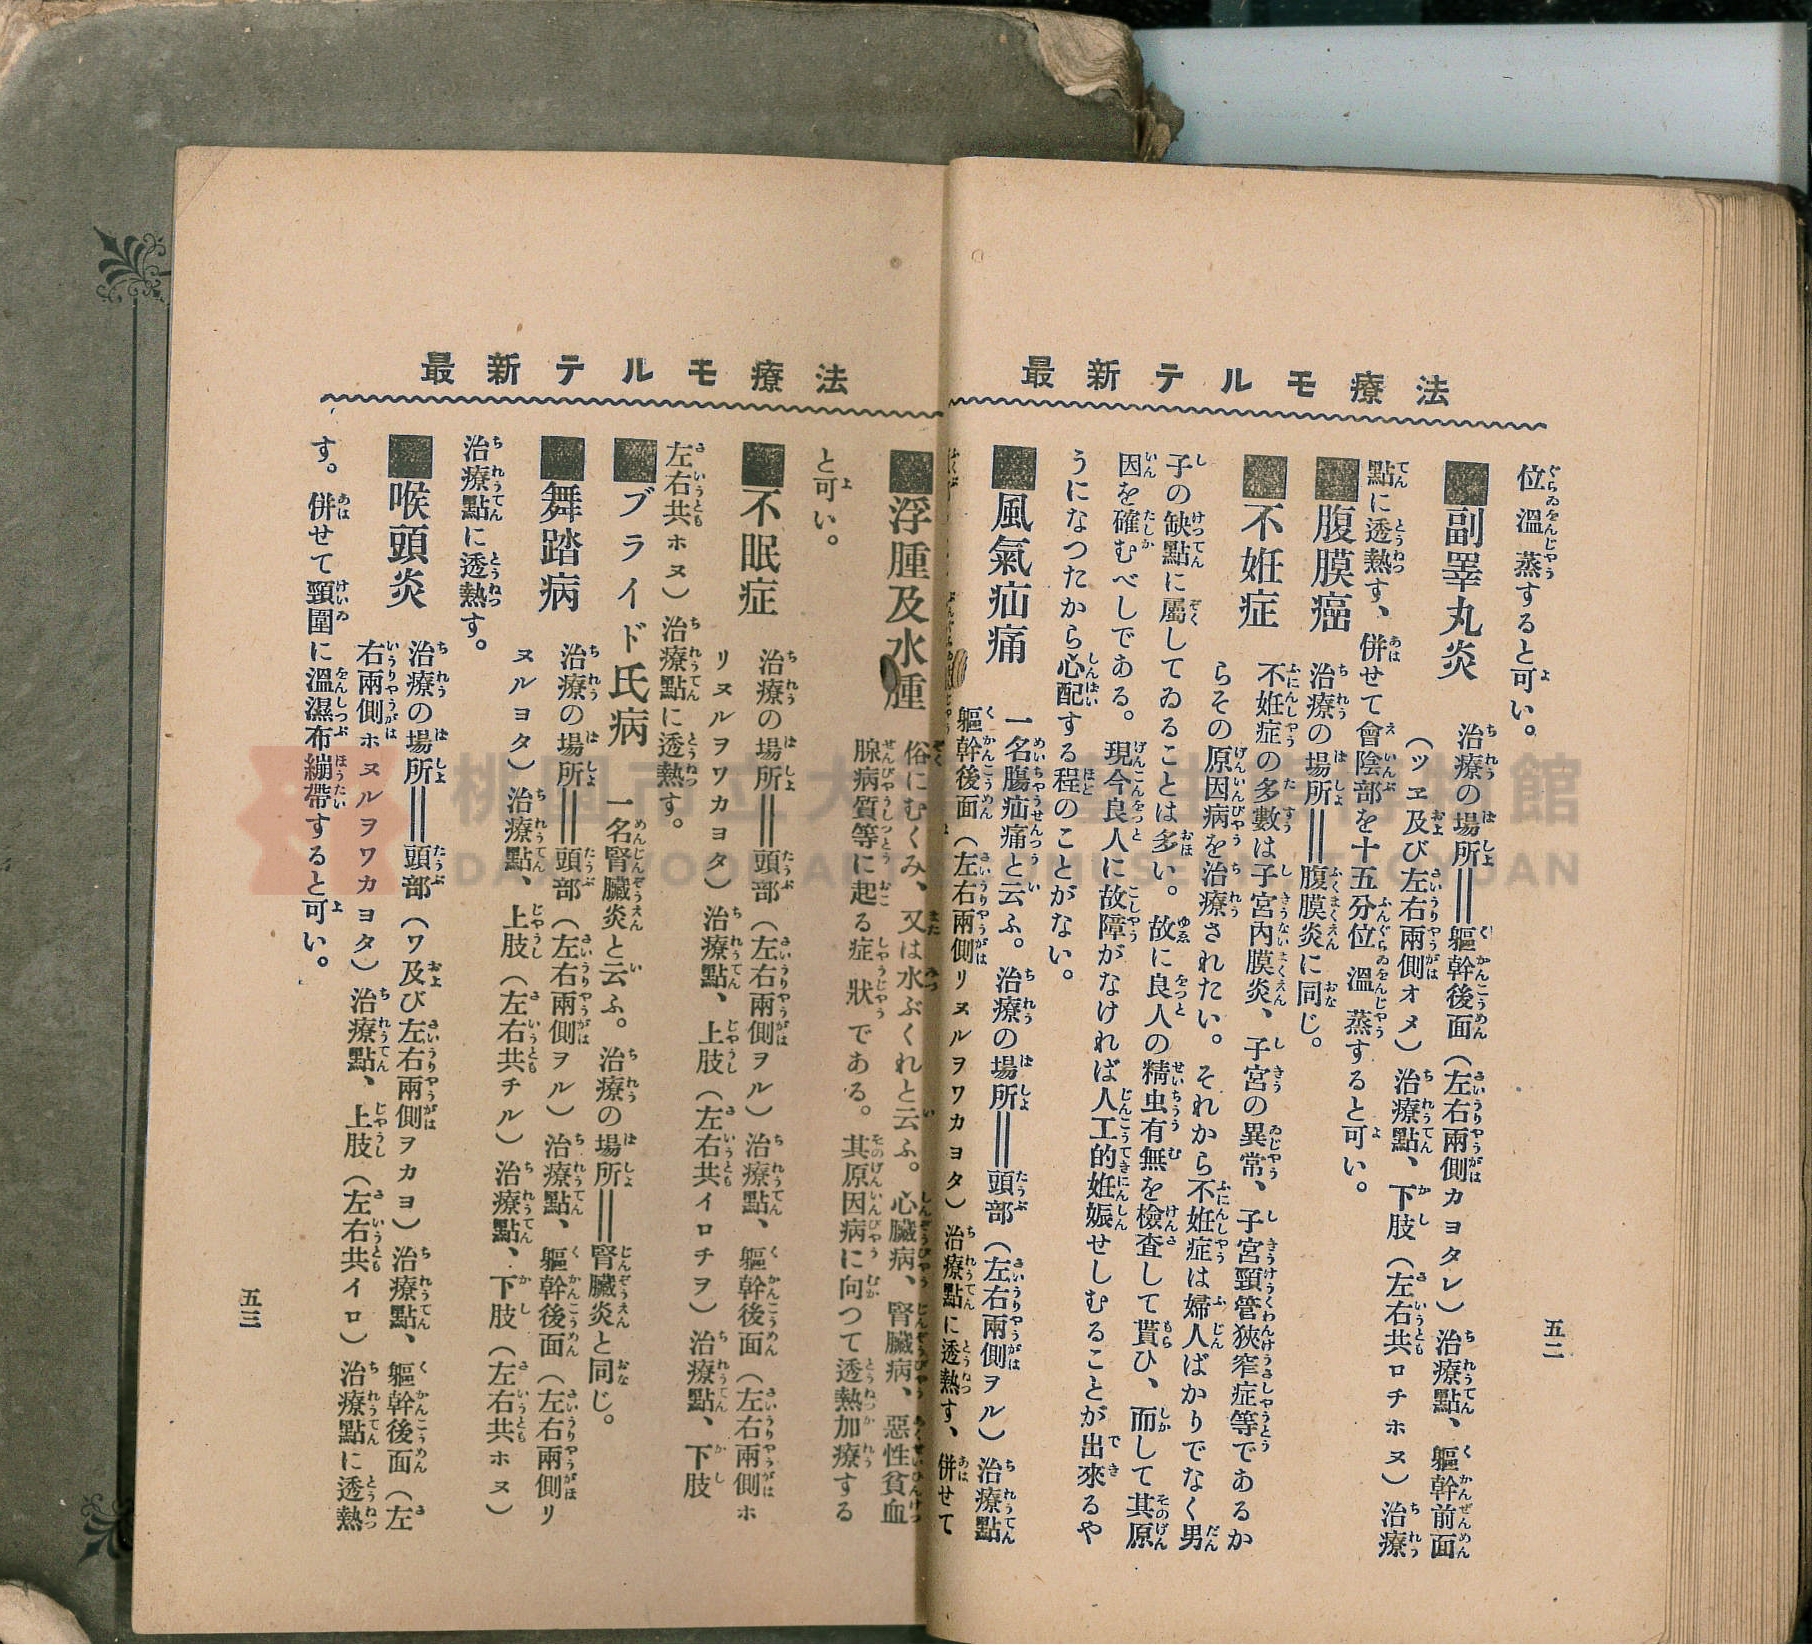 最新テルモ療法
位溫蒸すると可い。
■副睪丸炎 治療の場所＝軀幹後面（左右兩側カヨタレ）治療點、軀幹前面
（ツヱ及び左右兩側オメ）治療點、下肢（左右共ロチホヌ）治療
點に透熱す、併せて會陰部を十五分位溫蒸すると可い。
■腹膜癌 治療の場所＝腹膜炎に同じ。
■不姙症 不姙症の多數は子宮內膜炎、子宮の異常、子宮頸管狹窄症等であるか
らその原因病を治療されたい。それから不姙症は婦人ばかりでなく男
子の缺點に屬してゐることは多い。故に良人の精虫有無を檢査して貰ひ、而して其原
因を確むべしである。現今良人に故障がなければ人工的姙娠せしむることが出來るや
うになつたから心配する程のことがない。
■風氣疝痛 一名腸疝痛と云ふ。治療の場所＝頭部（左右兩側ヲル）治療點
軀幹後面（左右兩側リヌルヲワカヨタ）治療點に透熱す、併せて
五二
最新テルモ療法
■浮腫及水腫 俗にむくみ、又は水ぶくれと云ふ。心臟病、腎臟病、惡性貧血
腺病質等に起る症狀である。其原因病に向つて透熱加療する
と可い。
■不眠症 治療の場所＝頭部（左右兩側ヲル）治療點、軀幹後面（左右兩側ホ
リヌルヲワカヨタ）治療點、上肢（左右共イロチヲ）治療點、下肢
左右共ホヌ）治療點に透熱す。
■ブライド氏病 一名腎臟炎と云ふ。治療の場所＝腎臟炎と同じ。
■舞踏病 治療の場所＝頭部（左右兩側ヲル）治療點、軀幹後面（左右兩側リ
ヌルヨタ）治療點、上肢（左右共チル）治療點、下肢（左右共ホヌ）
治療點に透熱す。
■喉頭炎 治療の場所＝頭部（ワ及び左右兩側ヲカヨ）治療點、軀幹後面（左
右兩側ホヌルヲワカヨタ）治療點、上肢（左右共イロ）治療點に透熱
す。併せて頸圍に溫濕布繃帶すると可い。
五三